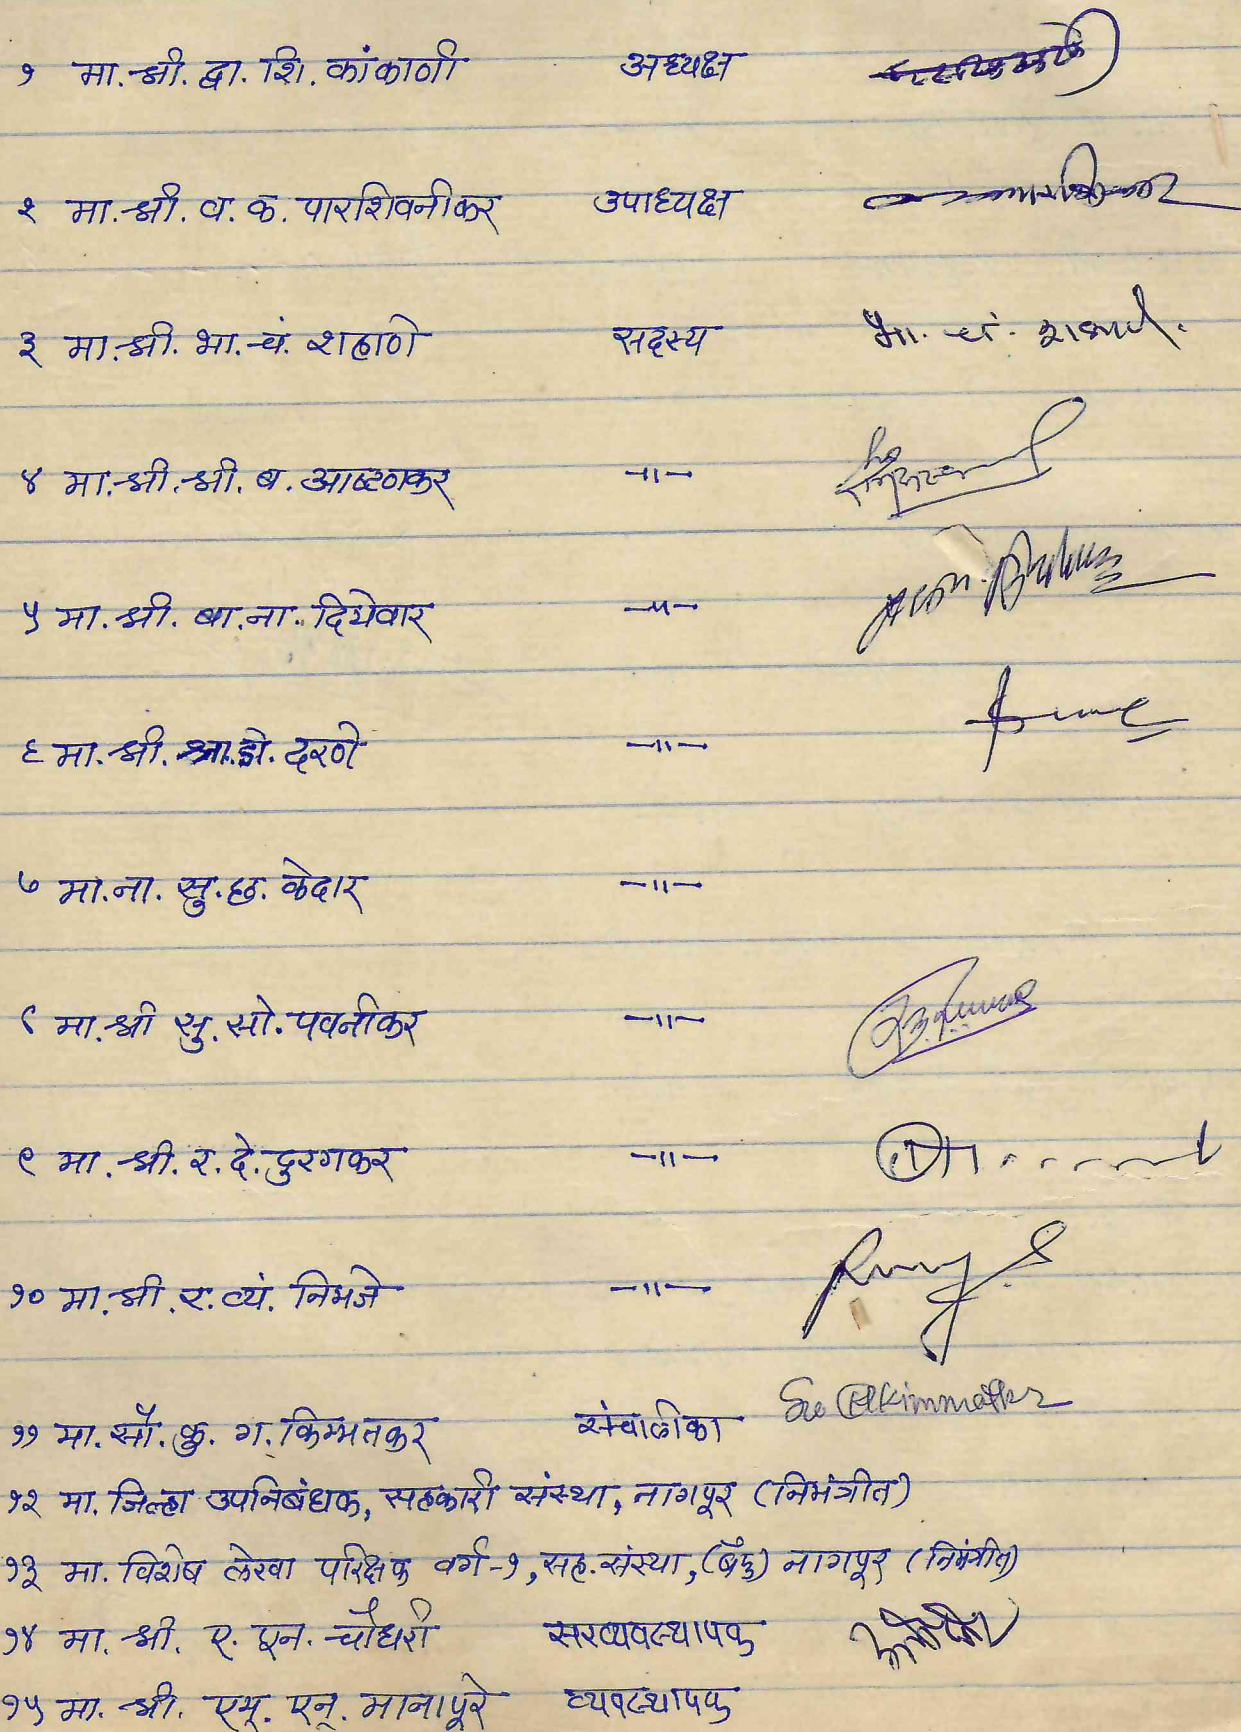 १ मा. श्री. द्वा. शि. कांकाणी अध्यक्ष
२ मा. श्री. व. क. पारशिवनीकर उपाध्यक्ष
३ मा. श्री. भा. चं. शहाणे सदस्य भा. चं. शहाणे.
४ मा. श्री. श्री. ब. आष्टणकर -"-
५ मा. श्री. बा. ना. दियेवार -"-
६ मा. श्री. दरणे -"-
७ मा. ना. सु. छ. केदार -"-
८ मा. श्री सु. सो. पवनीकर -"-
९ मा. श्री. र. दे. दुरगकर -"-
१० मा. श्री. र. व्यं. निमजे -"-
११ मा. सौ. कु. ग. किम्मतकर संचालीका
१२ मा. जिल्हा उपनिबंधक, सहकारी संस्था, नागपूर (निमंत्रीत)
१३ मा. विशेष लेखा परिक्षक वर्ग-१, सह. संस्था, (बँक) नागपूर (निमंत्रीत)
१४ मा. श्री. ए. एन. चौधरी सरव्यवस्थापक
१५ मा. श्री. एम्. एन्. मानापूरे व्यवस्थापक